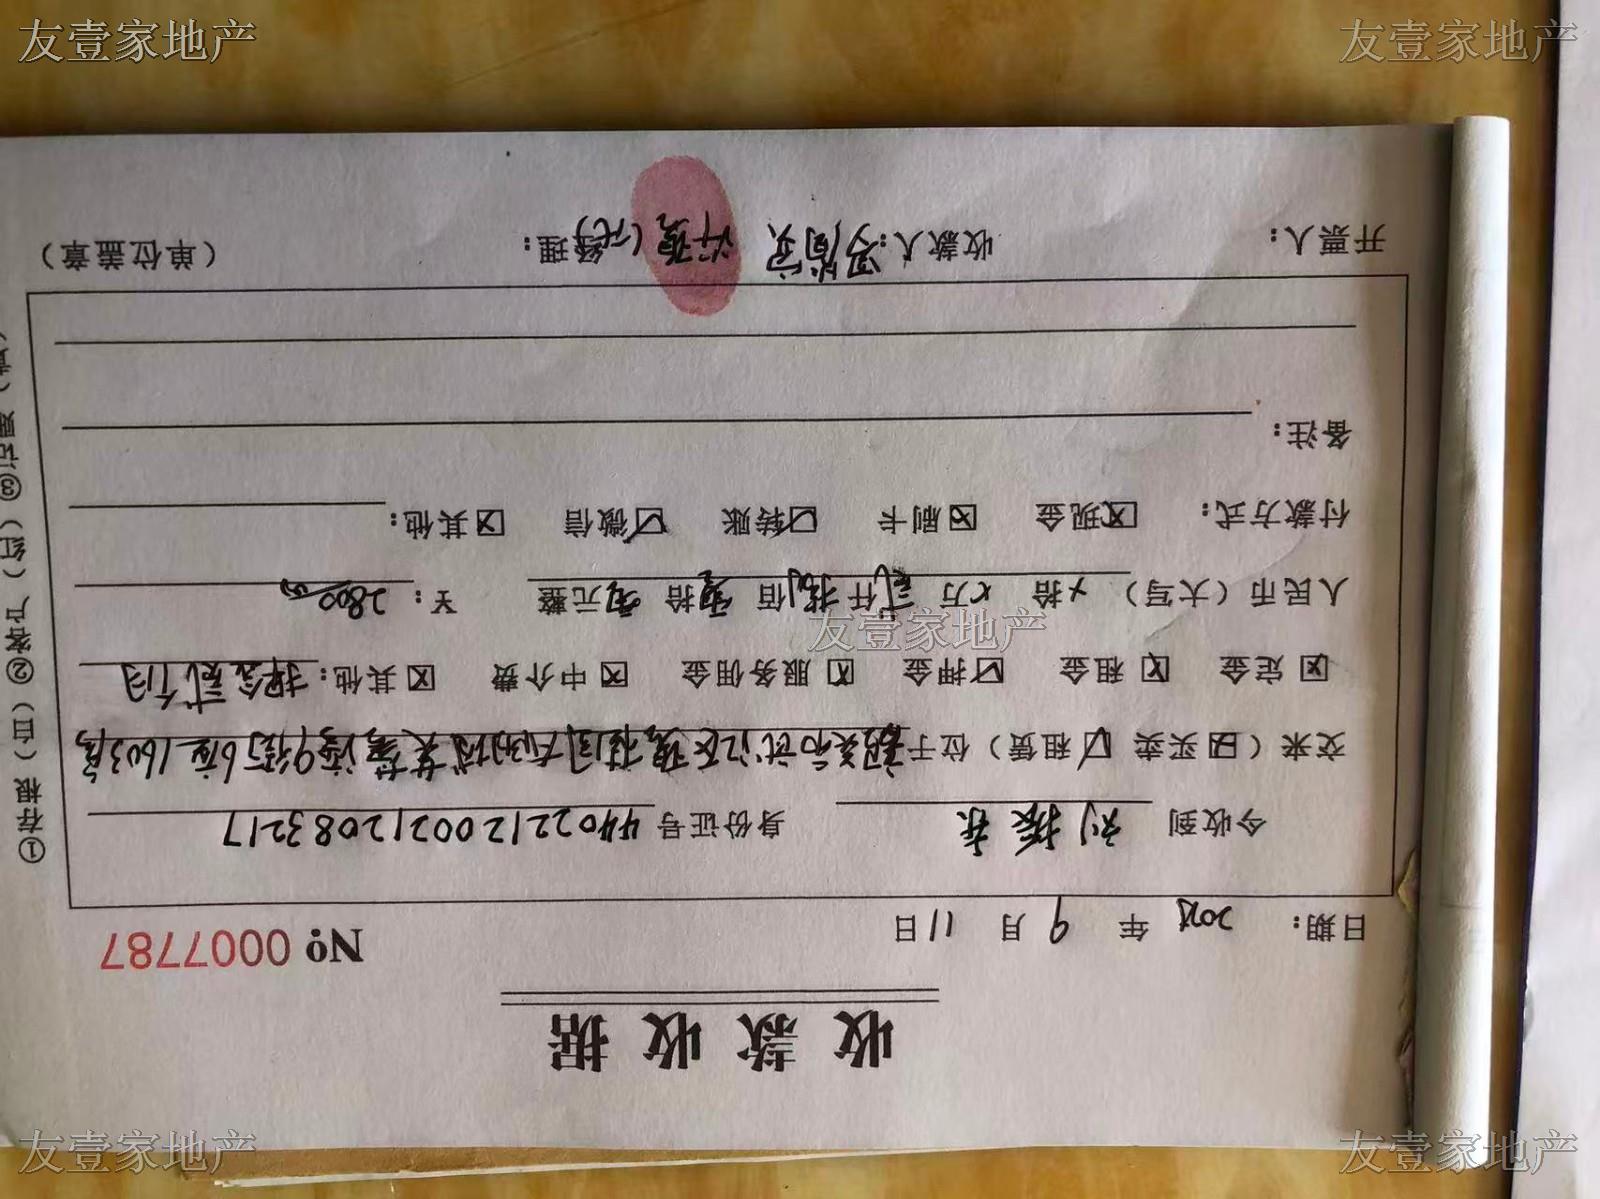 友壹家地产 友壹家地产
收款收据
日期： 年 9 月 11 日 № 0007787
今收到 刘振东 身份证号 440221200212083217
交来（ 买卖 租赁）位于韶关市武江区 9街6座1603房
定金 租金 押金 服务佣金 中介费 其他：押金贰个月
人民币（大写） × 拾 × 万 贰 仟 捌 佰 零 拾 零 元整 ¥：2800
友壹家地产
付款方式： 现金 刷卡 转账 微信 其他：
备注：
开票人： 收款人： 经理： （单位盖章）
①存根（白）②客户（红）③记账（黄）
友壹家地产 友壹家地产